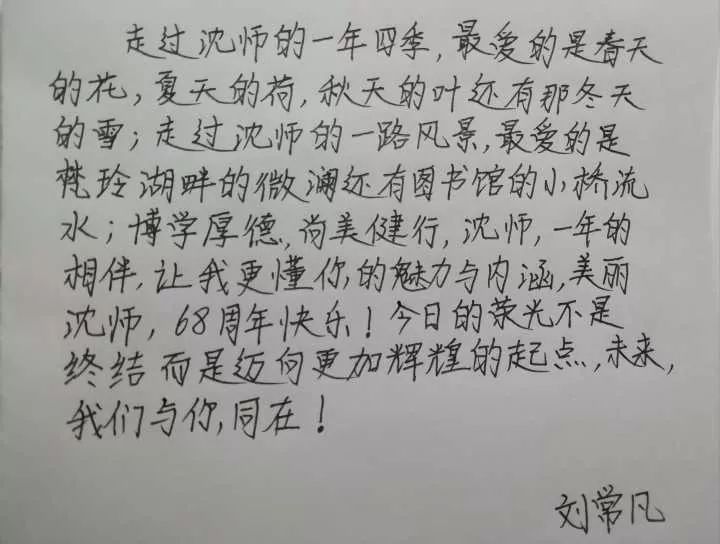 走过沈师的一年四季，最爱的是春天
的花，夏天的荷，秋天的叶还有那冬天
的雪；走过沈师的一路风景，最爱的是
梵玲湖畔的微澜还有图书馆的小桥流
水；博学厚德，尚美健行，沈师，一年的
相伴，让我更懂你的魅力与内涵，美丽
沈师，68周年快乐！今日的荣光不是
终结而是迈向更加辉煌的起点，未来，
我们与你，同在！
刘常凡